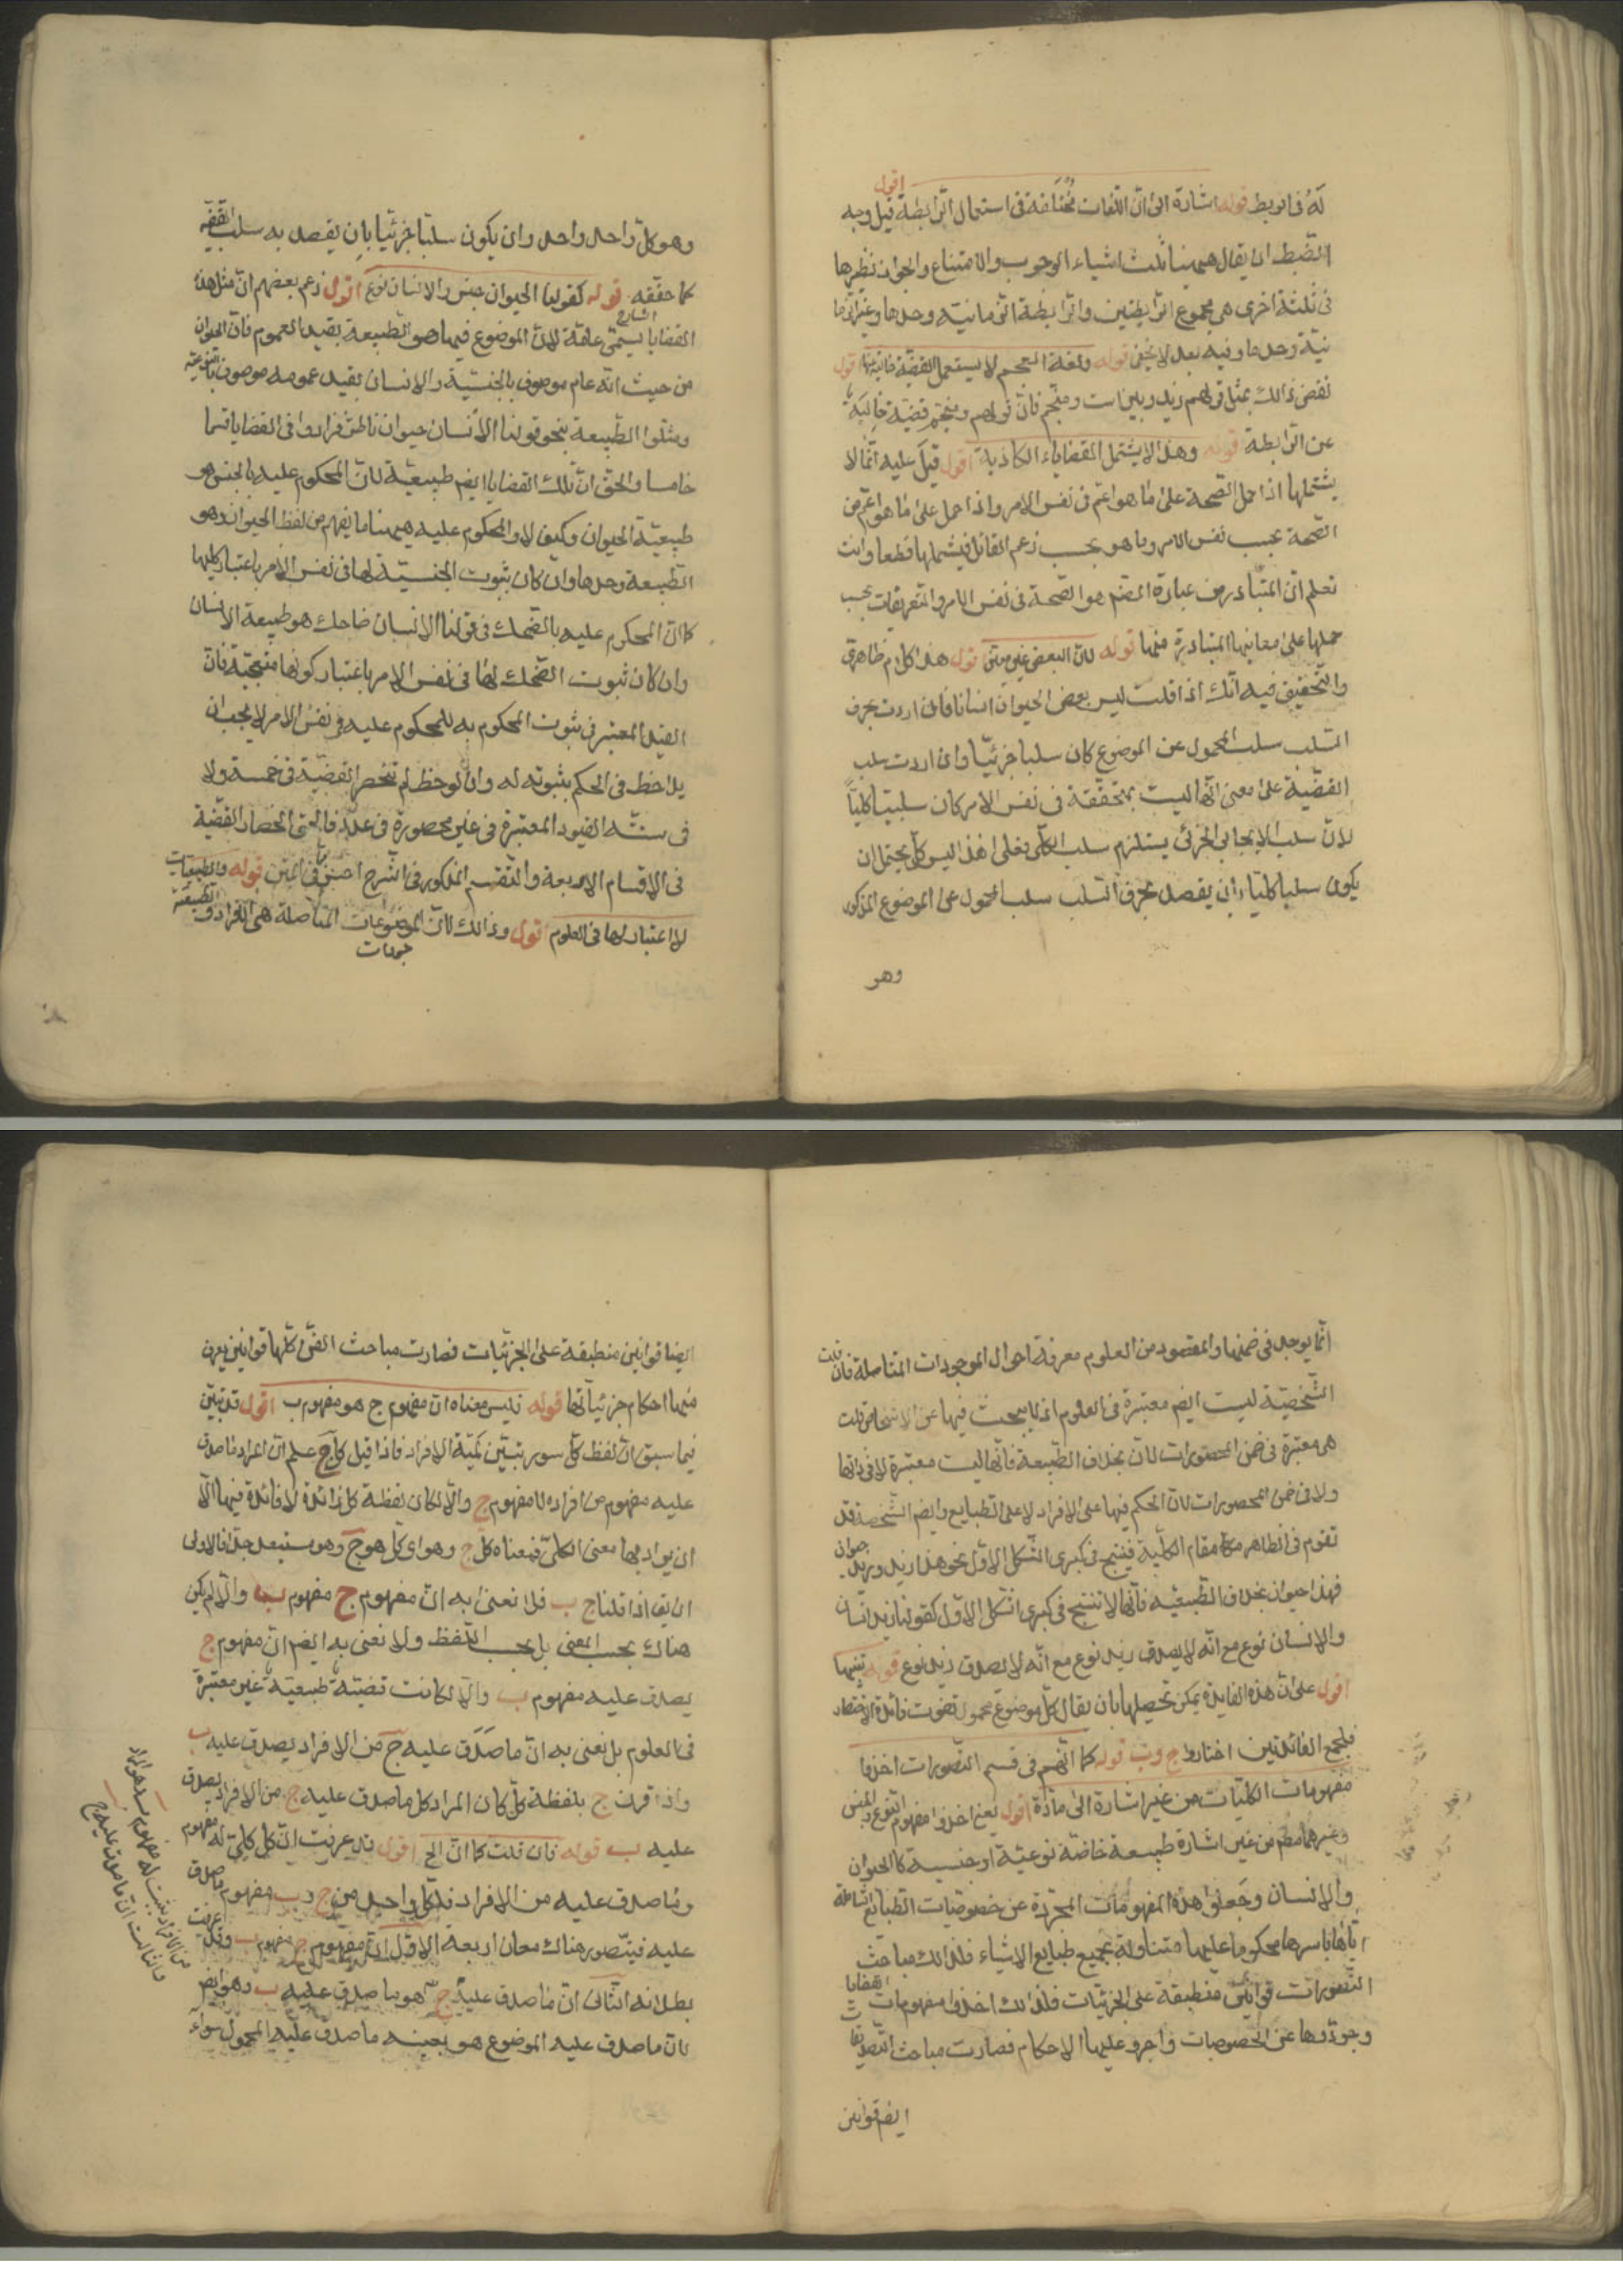 له فى الربط قوله اشارة الى ان اللغات مختلفة فى استعمال الرابطة اقول قيل وجه
الضبط ان يقال ههنا ثلث اشياء الوجوب والامتناع والجواز نظيرها
فى ثلثة اخرى هى مجموع الرابطتين والرابطة الزمانية وحدها وغير الزما
نية وحدها وفيه بعد لا يخفى قوله ولغة العجم لا يستعمل القضية خالية عنها اقول
نقض ذالك بمثل قولهم زيد دبيراست ومنجم فان قولهم ومنجم قضية خالية
عن الرابطة قوله وهذا لا يشتمل القضاياء الكاذبة اقول قيل عليه انما لا
يشتملها اذا حمل الصحة على ما هو اعم فى نفس الامر واذا حمل على ما هو اعم من
الصحة بحسب نفس الامر وما هو بحسب زعم القائل فيشملها قطعا وانت
تعلم ان المتبادر من عبارة المصنم هو الصحة فى نفس الامر والتعريفات يجب
حملها على معانيها المتبادرة منها قوله لان البعض غير معين اقول هذا كلام ظاهرى
والتحقيق فيه انك اذا قلت ليس بعض الحيوان انسانا فان اردت بحرف
السلب سلب المحمول عن الموضوع كان سلبا جزئيا وان اردت سلب
القضية على معنى انها ليست بمتحققة فى نفس الامر كان سلبيا كليا
لان سلب الايجابى الجزئى يستلزم سلب الكلى فعلى هذا ليس كل يحتمل ان
يكون سلبا كليا بان يقصد بحرف السلب سلب المحمول عن الموضوع المذكور
وهو
وهو كل واحد واحد وان يكون سلبا جزئيا بان يقصد به سلب القضية
كما حققه الشارح قوله كقولنا الحيوان جنس والانسان نوع اقول زعم بعضهم ان مثل هذه
القضايا يسمى عامة لان الموضوع فيها هو الطبيعة بقيد العموم فان الحيوان
من حيث انه عام موصوف بالجنسية والانسان بقيد عمومه موصوف بالنوعية
ومثلوا الطبيعة بنحو قولنا الانسان حيوان ناطق فزادوا فى القضايا قسما
خامسا والحق ان تلك القضايا ايضم طبيعية لان المحكوم عليه بالجنس هو
طبيعية الحيوان وكيف لا والمحكوم عليه ههنا ما يفهم من لفظ الحيوان وهو
الطبيعة وحدها وان كان ثبوت الجنسية لها فى نفس الامر باعتبار كليها
كما ان المحكوم عليه بالضحك فى قولنا الانسان ضاحك هو طبيعة الانسان
وان كان ثبوت الضحك لها فى نفس الامر باعتبار كونها متعجبة فان
القيد المعتبر فى ثبوت المحكوم به للمحكوم عليه فى نفس الامر لا يجب ان
يلاحظ فى الحكم بثبوته له وان لوحظ لم تنحصر القضية فى خمسة ولا
فى ستة القيود المعتبرة فى غير محصورة فى عدد فالحق انحصار القضية
فى الاقسام الاربعة والتقسيم المذكور فى الشرح احسن مما فى المتن قوله والطبيعيات
لا اعتبار لها فى العلوم اقول وذالك لان الموضوعات المتاصلة هى الافراد والطبيعة
جودات
انما يوجد فى ضمنها والمقصود من العلوم معرفة احوال الموجودات المتاصلة فان قلت
الشخصية ليست ايضم معتبرة فى العلوم اذ لا يبحث فيها عن الاشخاص قلت
هى معتبرة فى ضمن المحصورات لان بخلاف الطبيعة فانها ليست معتبرة لا فى ذاتها
ولا فى ضمن المحصورات لان الحكم فيها على الافراد لا على الطبايع وايضم الشخصية قد
تقوم فى الظاهر مقام الكلية فينتج فى كبرى الشكل الاول نحو هذا زيد وزيد حيوان
فهذا حيوان بخلاف الطبيعية فانها لا تنتج فى كبرى الشكل الاول كقولنا زيد انسان
والانسان نوع مع انه لا يصدق زيد نوع مع انه لا يصدق زيد نوع قوله تنبيها
اقول على ان هذه الفايدة يمكن تحصيلها بان يقال كل موضوع محمول تفوت فائدة الاختصار
فلجمع الفائدتين اختاروا ج وب قوله كما انهم فى قسم التصورات اخذوا
مفهومات الكليات من غير اشارة الى مادة اقول يعنى اخذوا مفهوم النوع والجنس
وغيرهما من غير اشارة طبيعة خاصة نوعية او جنسية كالحيوان
والانسان وجعلوا هذه المفهومات المجردة عن خصوصيات الطبايع الشاملة
اياها باسرها محكوما عليها متناولة بجميع طبايع الاشياء فلذالك مباحث
التصورات قوانين منطبقة على الجزئيات فلذالك اخذوا مفهومات القضايا
وجردوها عن الخصوصات واجرو عليها الاحكام فصارت مباحث التصديقات
ايضم قوانين
ايضا قوانين منطبقة على الجزئيات فصارت مباحث الفن كلها قوانين يعرف
منها احكام جزئياتها قوله فليس معناه ان مفهوم ج هو مفهوم ب اقول قد تبين
فيما سبق ان لفظ كل سور تبين كمية الافراد فاذا قيل كل ج علم ان المراد ما صدق
عليه مفهوم من افراده لا مفهوم ج والا لكان لفظة كل زائدة لا فائدة فيها الا
ان يراد بها معنى الكلى فمعناه كل ج وهو اى كل هو ج وهو مستبعد جدا فالاولى
ان يق اذا قلنا ج ب فلا نعنى به ان مفهوم ج مفهوم ب والا لم يكن
هناك بحسب المعنى بل بحسب اللفظ ولا نعنى به ايضم ان مفهوم ج
يصدق عليه مفهوم ب والا لكانت قضية طبيعية غير معتبرة
فى العلوم بل نعنى به ان ما صدق عليه ج من الافراد يصدق عليه ب
واذا قرن ج بلفظة كل كان المراد كل ما صدق عليه ج من الافراد يصدق
عليه ب قوله فان قلت كما ان الخ اقول قد عرفت ان كل كلى له مفهوم
وما صدق عليه من الافراد فلكل واحد من ج وب مفهوم وصدق
عليه فيتصور هناك معان اربعة الاول ان مفهوم ج مفهوم ب وقد عرفت
بطلانه الثانى ان ما صدق عليه ج هو ما صدق عليه ب وهو ايضم
بان ما صدق عليه الموضوع هو بعينه ما صدق عليه المحمول سواء
من الافراد يثبت له مفهوم ب هو المراد
والثالث ان ما صدق عليه ج